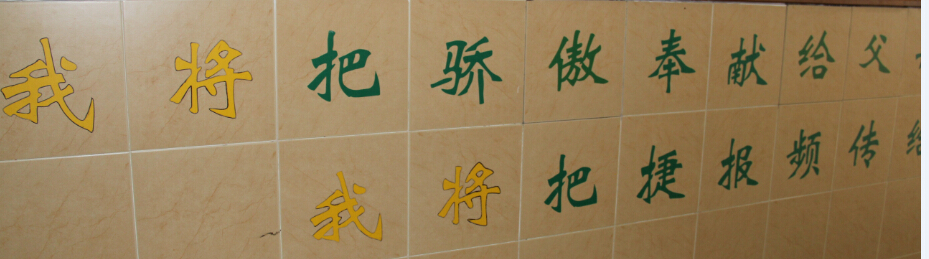 我将把骄傲奉献给父
我将把捷报频传给